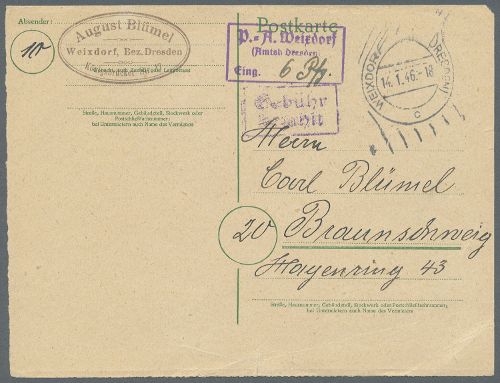 Absender:
August Blümel
Weixdorf, Bez. Dresden
10
Straße, Hausnummer, Gebäudeteil, Stockwerk oder
Postschließfachnummer;
bei Untermietern auch Name des Vermieters
Postkarte
P.-A. Weixdorf
(Amtsh Dresden)
Eing. 6 Pfg.
Gebühr
bezahlt
WEIXDORF
14.1.46.-18
c
Herrn
Carl Blümel
20 Braunschweig
Hagenring 43
Straße, Hausnummer, Gebäudeteil, Stockwerk oder Postschließfachnummer;
bei Untermietern auch Name des Vermieters